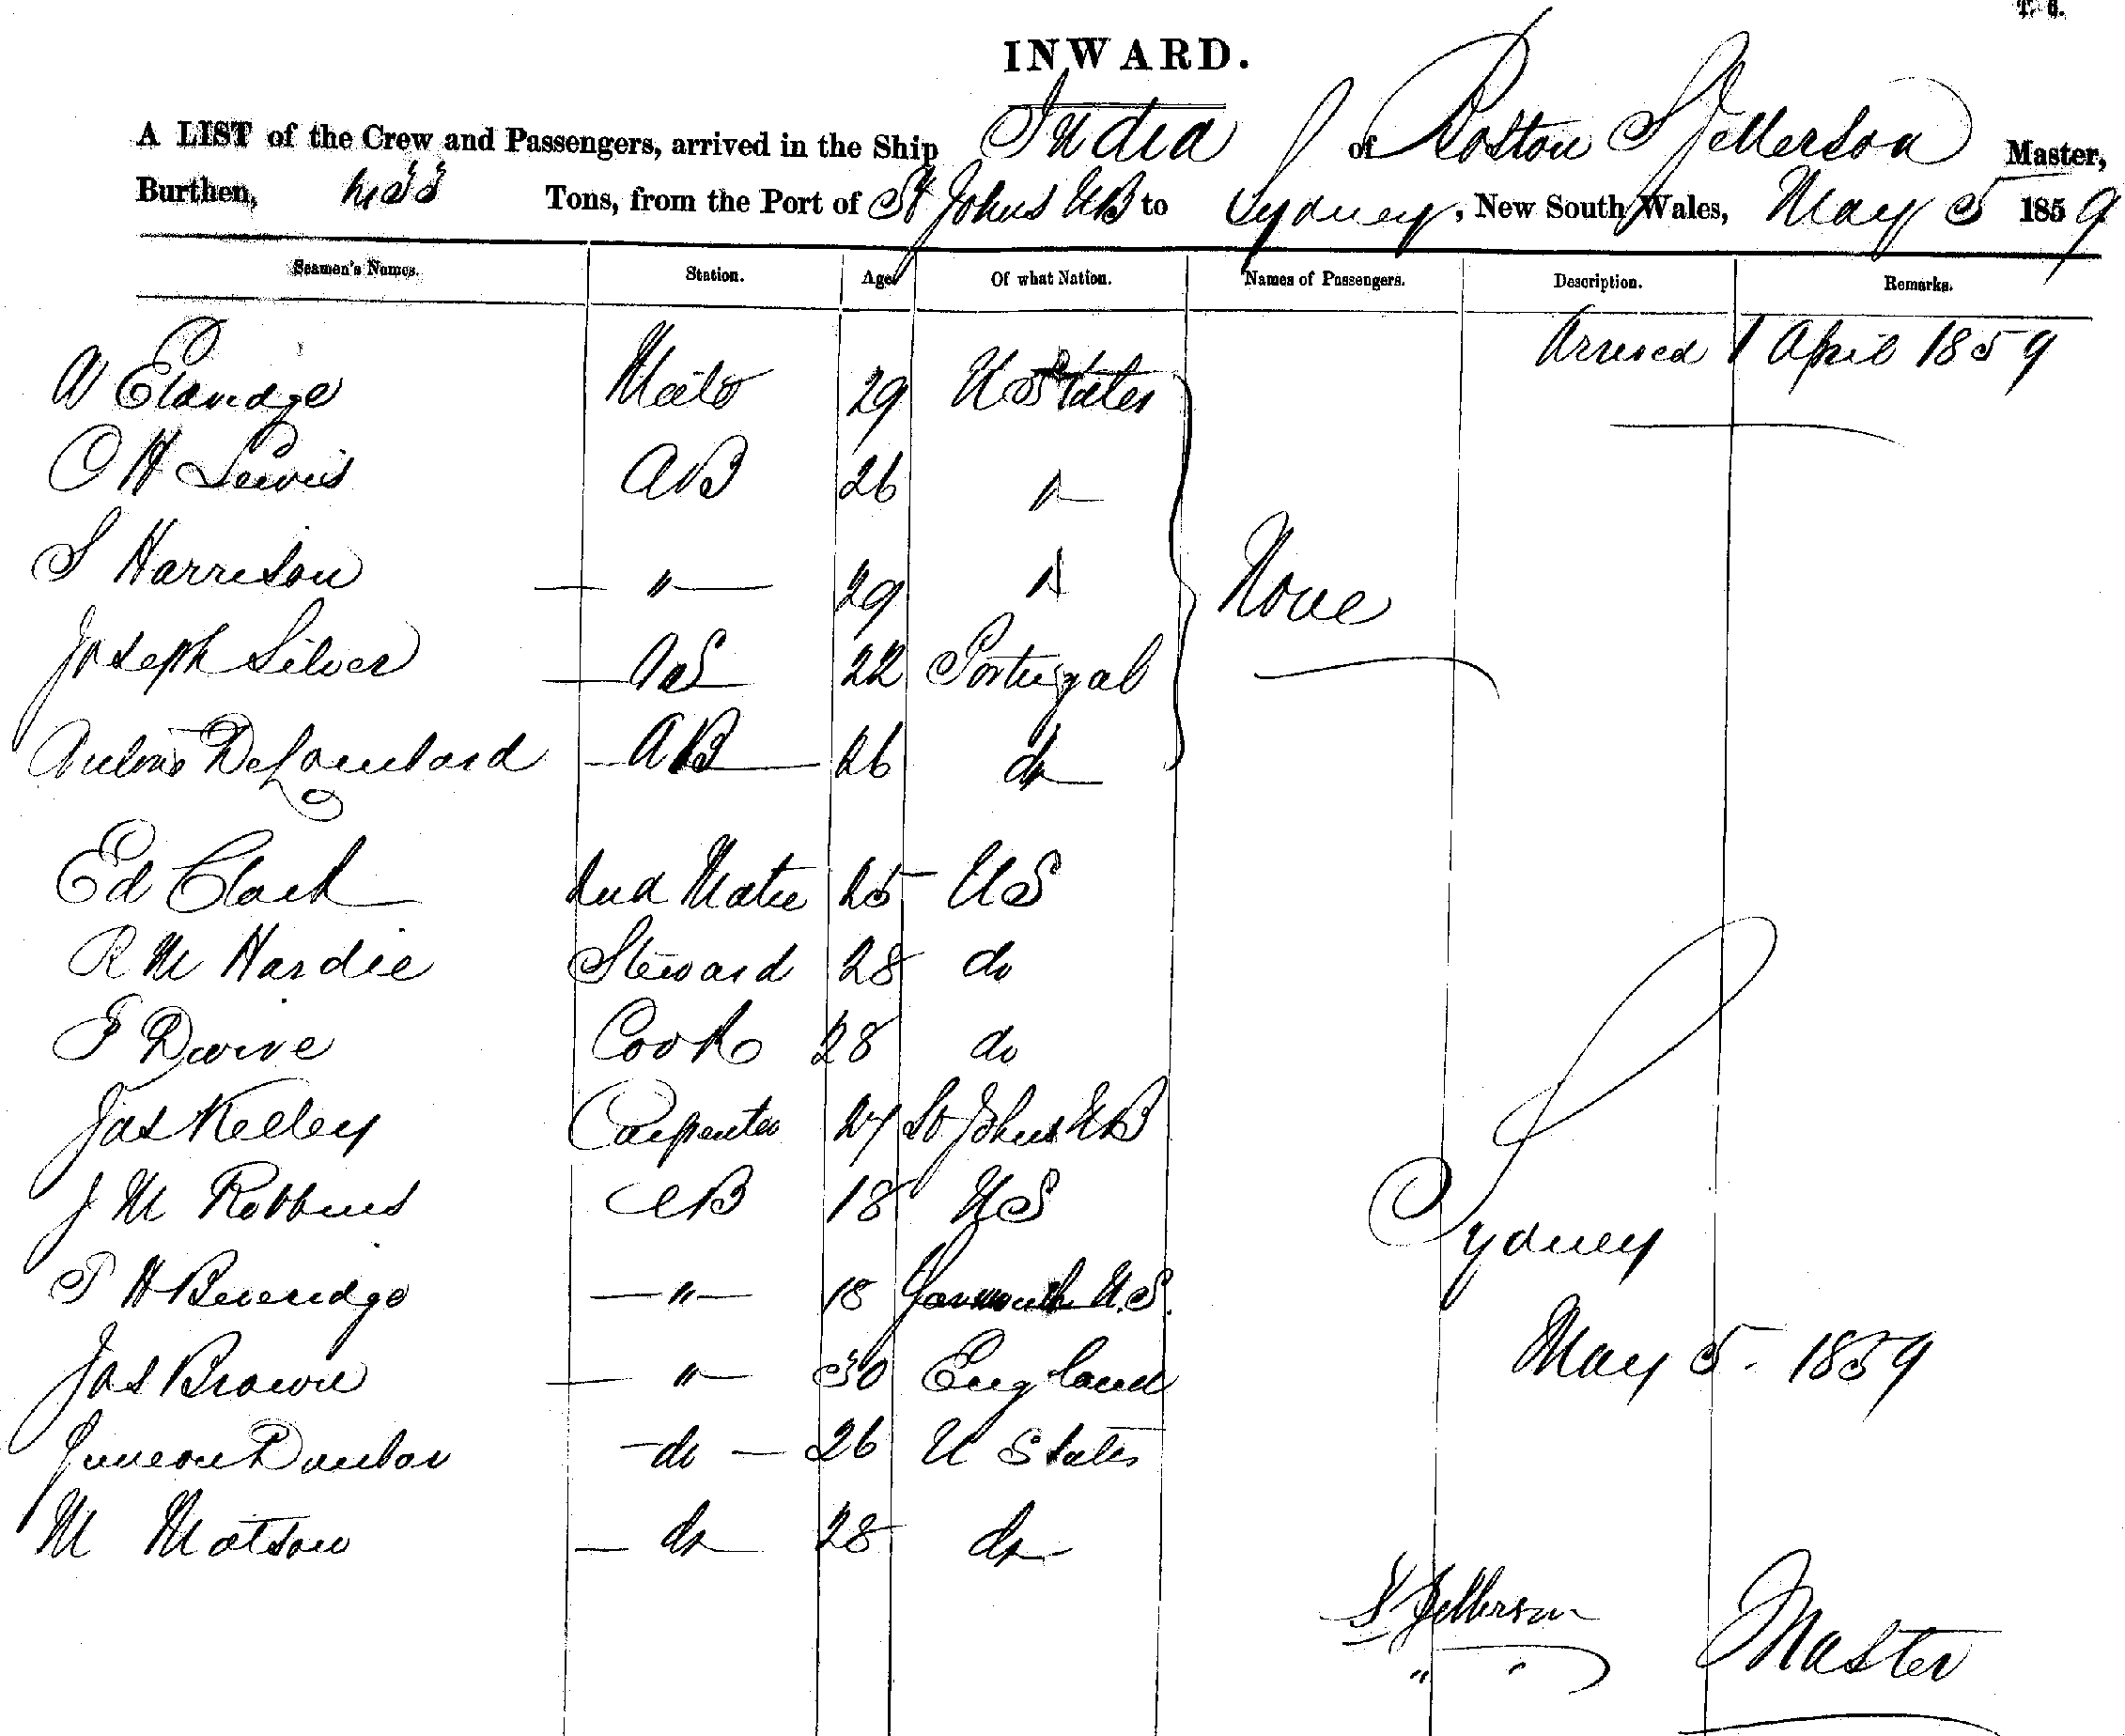 T. 6.
INWARD.
A LIST of the Crew and Passengers, arrived in the Ship India of Boston S Jefferson Master,
Burthen, Tons, from the Port of St Johns NB to Sydney, New South Wales, May 5 1859
Seamen's Names. Station. Age Of what Nation. Names of Passengers. Description. Remarks.
Arrived 1 April 1859
W Eldridge Mate 29 U States
O H Lewis AB 26 "
S Harrison " 29 "
None
Joseph Silver OS 22 Portugal
De Lombard AB 26 do
Ed Clark 2nd Mate 25 US
R M Hardie Steward 28 do
Cook 28 do
Jas Kelley Carpenter 27 St Johns NB
J M Robbins AB 18 US
P H Beveridge " 18 Yarmouth N.S.
Sydney
Jas Brown " 30 England
May 5. 1859
Dunbar do 26 U States
M Matson do 28 do
S Jefferson Master
" "